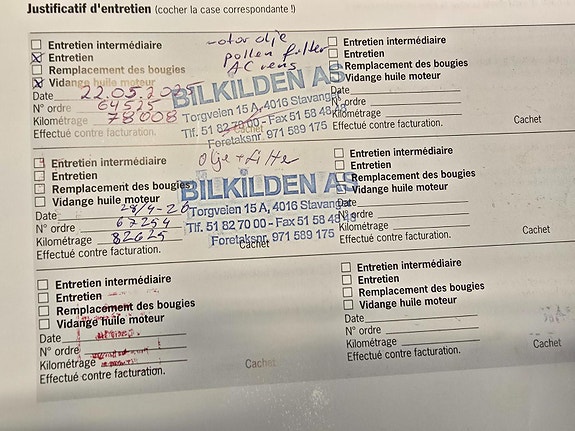 Justificatif d'entretien (cocher la case correspondante !)
Entretien intermédiaire
Entretien
Remplacement des bougies
Vidange huile moteur
Date 22.05.2025
N° ordre 64525
Kilométrage 78008
Effectué contre facturation.
Cachet
motor olje
pollen filter
AC rens
BILKILDEN AS
Torgveien 15 A, 4016 Stavanger
Tlf. 51 82 70 00 - Fax 51 58 48
Foretaksnr. 971 589 175
Entretien intermédiaire
Entretien
Remplacement des bougies
Vidange huile moteur
Date
N° ordre
Kilométrage
Effectué contre facturation.
Cachet
Entretien intermédiaire
Entretien
Remplacement des bougies
Vidange huile moteur
Date 28/4-20
N° ordre 67254
Kilométrage 82625
Effectué contre facturation.
Cachet
Olje +
BILKILDEN AS
Torgveien 15 A, 4016 Stavanger
Tlf. 51 82 70 00 - Fax 51 58 48
Foretaksnr. 971 589 175
Entretien intermédiaire
Entretien
Remplacement des bougies
Vidange huile moteur
Date
N° ordre
Kilométrage
Effectué contre facturation.
Cachet
Entretien intermédiaire
Entretien
Remplacement des bougies
Vidange huile moteur
Date
N° ordre
Kilométrage
Effectué contre facturation.
Cachet
Entretien intermédiaire
Entretien
Remplacement des bougies
Vidange huile moteur
Date
N° ordre
Kilométrage
Effectué contre facturation.
Cachet